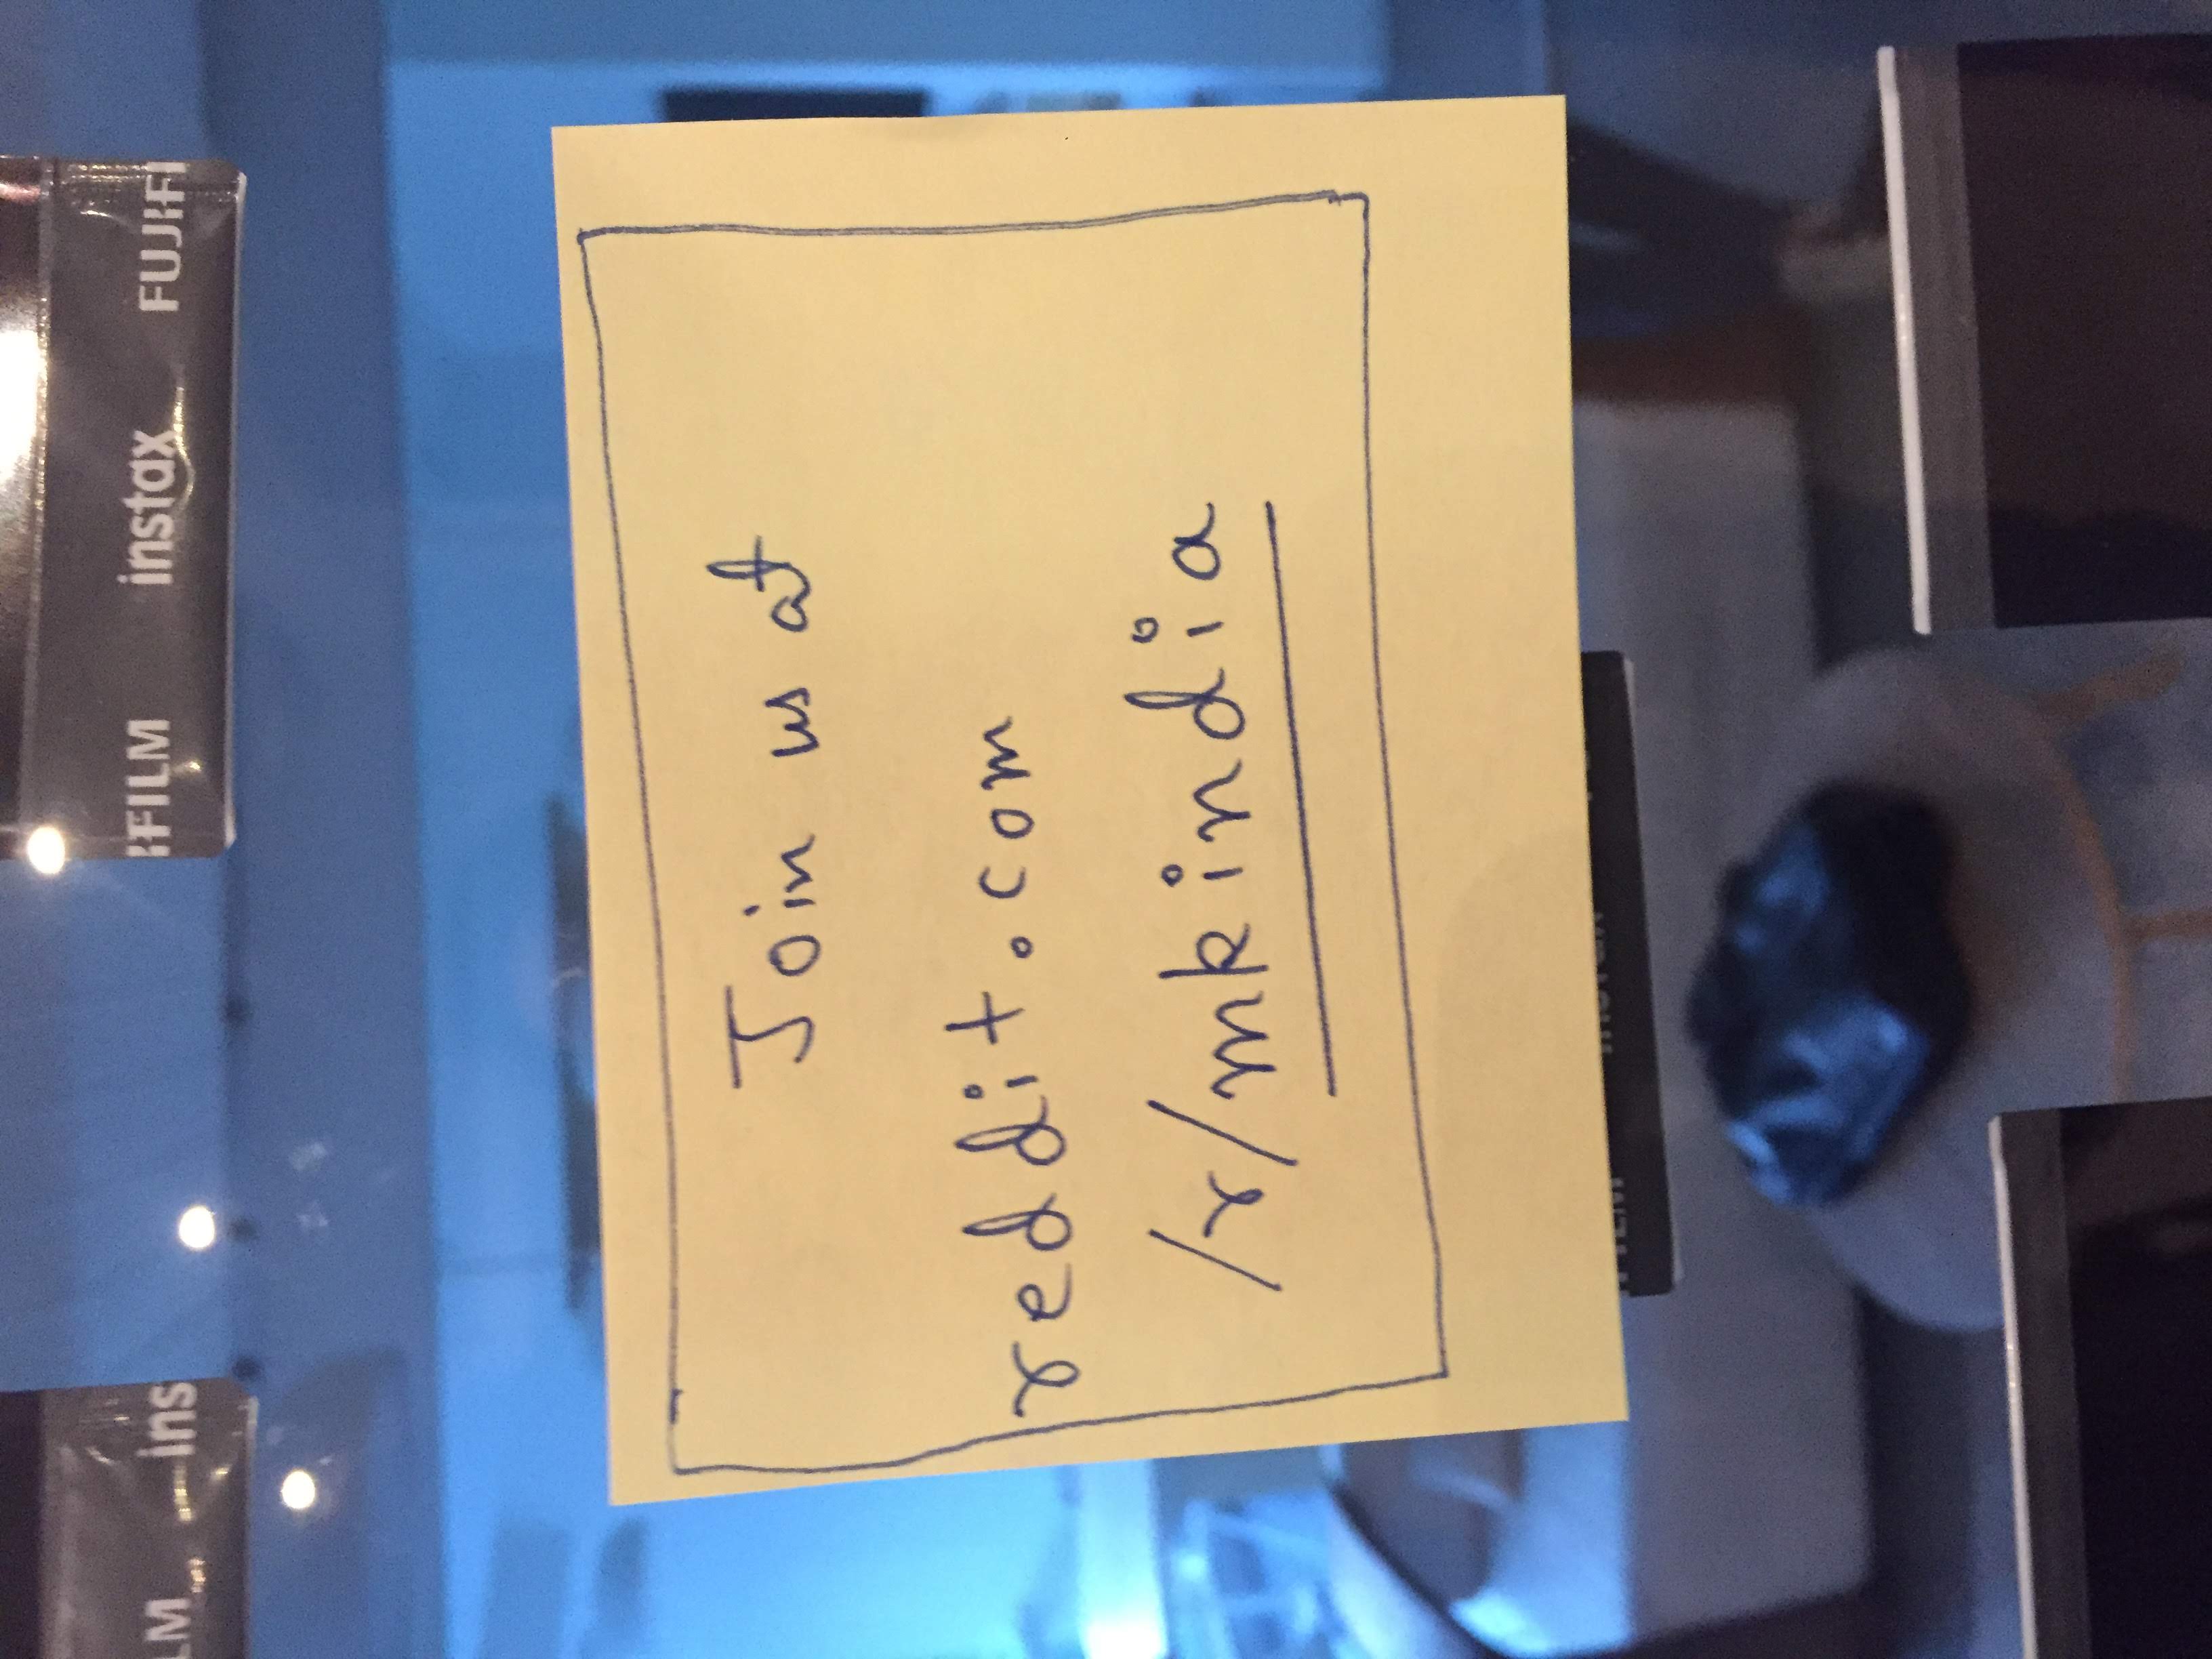 LM ins
FILM instax FUJIFI
Join us at
reddit.com
/r/mkindia